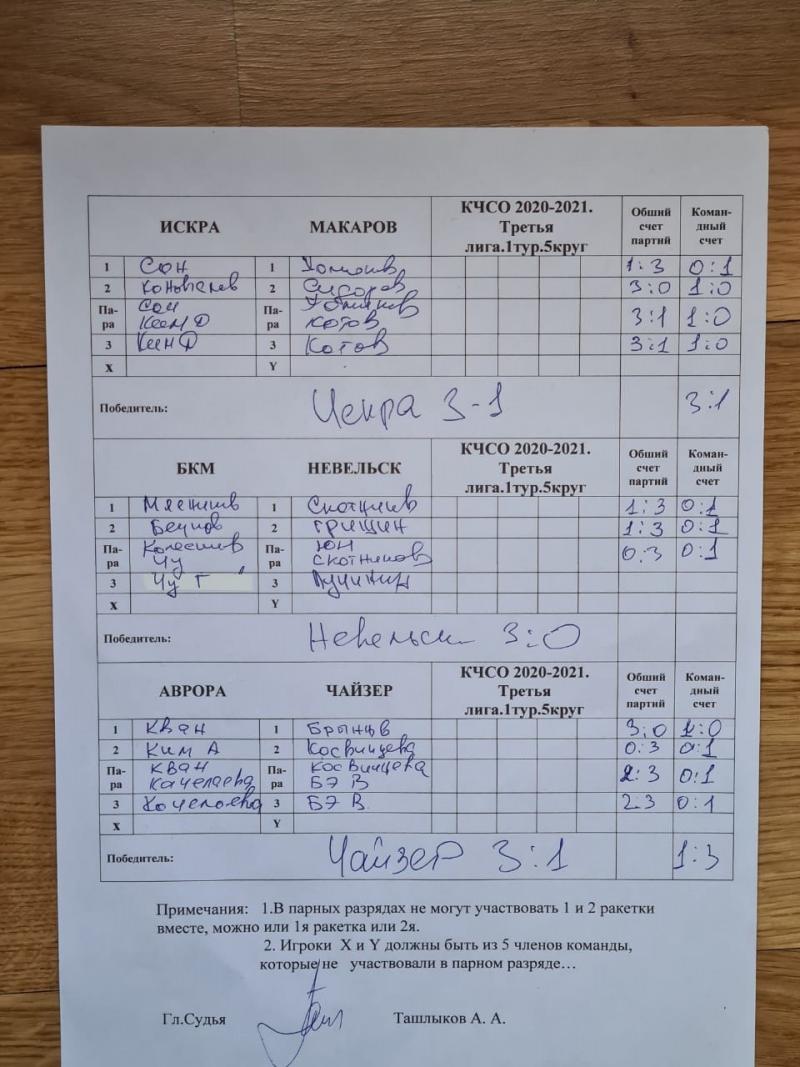 ИСКРА МАКАРОВ КЧСО 2020-2021. Третья лига.1тур.5круг Обший счет партий Коман-дный счет
1 Сон 1 1:3 0:1
2 Коновалев 2 Сидоров 3:0 1:0
Па-ра Сон Па-ра 3:1 1:0
Ким Д Котов
3 Ким Д 3 Котов 3:1 1:0
X Y
Победитель: Искра 3-1 3:1
БКМ НЕВЕЛЬСК КЧСО 2020-2021. Третья лига.1тур.5круг Обший счет партий Коман-дный счет
1 1 1:3 0:1
2 2 Гришин 1:3 0:1
Па-ра Па-ра Юн 0:3 0:1
Чу Скотников
3 Чу Г 3
X Y
Победитель: Невельск 3:0
АВРОРА ЧАЙЗЕР КЧСО 2020-2021. Третья лига.1тур.5круг Обший счет партий Коман-дный счет
1 Кван 1 Брынцв 3:0 1:0
2 Ким А 2 Косвинцева 0:3 0:1
Па-ра Кван Па-ра Косвинцева 2:3 0:1
Качелаева БЭ В
3 3 БЭ В 2 3 0:1
X Y
Победитель: Чайзер 3:1 1:3
Примечания: 1.В парных разрядах не могут участвовать 1 и 2 ракетки
вместе, можно или 1я ракетка или 2я.
2. Игроки X и Y должны быть из 5 членов команды,
которые не участвовали в парном разряде…
Гл.Судья Ташлыков А. А.